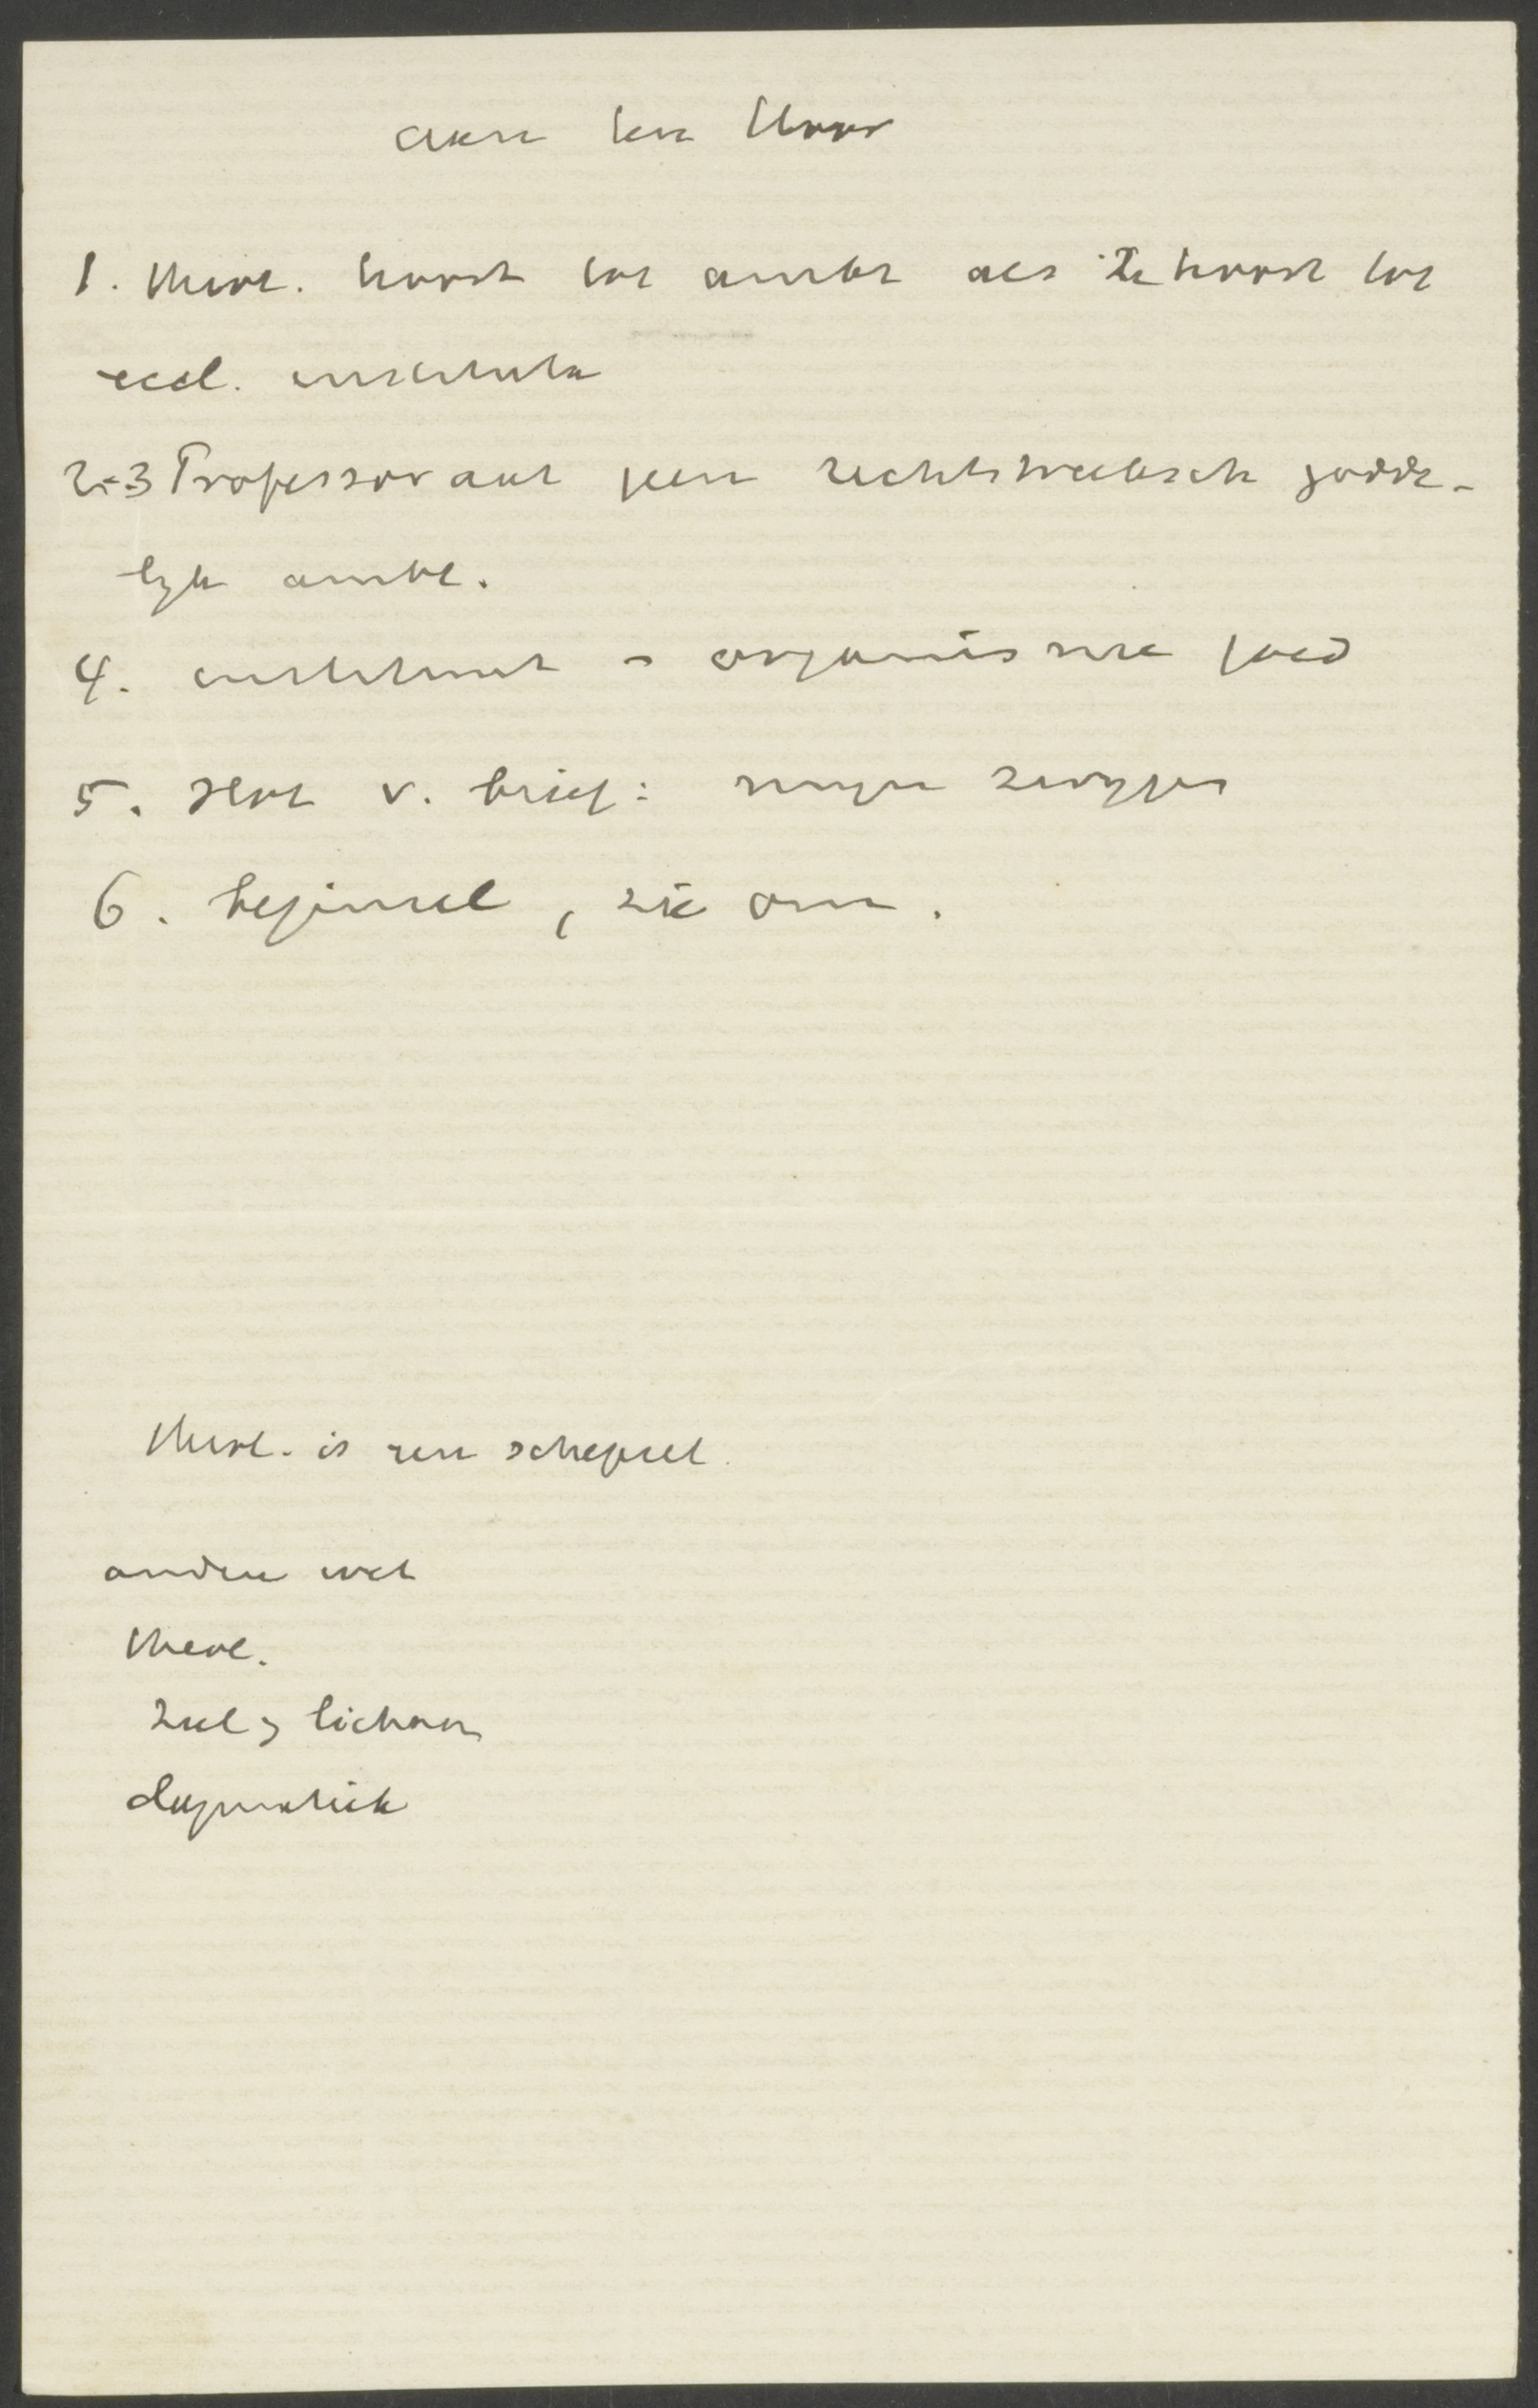 aan ten Hoor
1. theol. hoort tot ambt als ze hoort tot
eccl. instituta
2-3 Professoraat geen rechtstreeksch godde-
lijk ambt.
4. instituut organisme goed
5. slot v. brief: zwijgen
6. beginsel, zie om.
theol. is een schepsel.
andere wet
theol.
ziel lichaam
dogmatiek